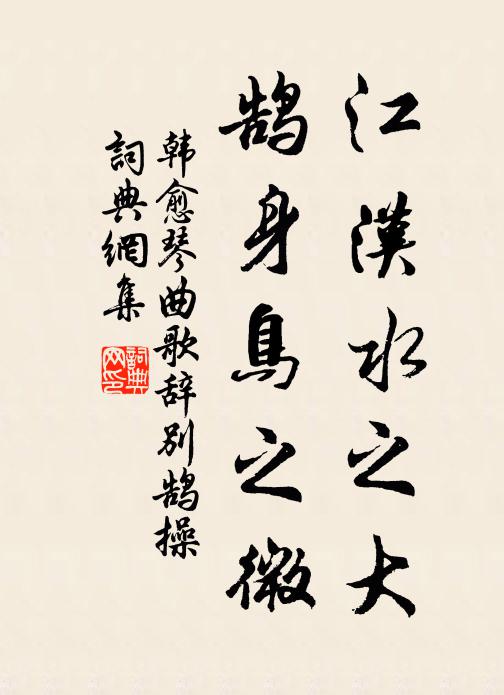 江漢水之大
鵠身鳥之微
韩愈琴曲歌辞别鵠操
詞典網集
詞典
网印